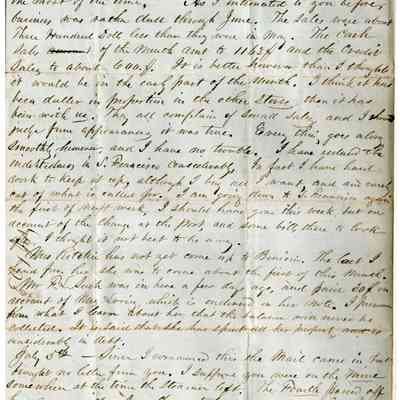 the most of the time. As I intimated to you before
business was rather dull through June. The Sales were about
Three Hundred Doll less than they were in May. The Cash
Sales of the Month amt to 1163 and the Credit
Sales to about 600. It is better however than I thought
it would be in the early part of the Month. I think it has
been duller in proportion in the other Stores than it has
been with us. They all complain of Small Sales and I should
judge from appearances it was true. Every thing goes along
smoothly however and I have no trouble. I have reduced the
indebtedness in S. Francisco considerably. In fact I have hard
work to keep it up, although I buy all I want, and am nearly
out of what is called for. I am going down to S. Francisco again
the first of next week, I should have gone this week but on
account of the change at the Post, and some bills there to look
after I thought it not best to be away.
Mrs Ritchie has not yet come up to Benicia. The last I
heard from her she was to come about the first of this Month.
Mr R. Such was in here a few days ago, and paid 20 on
account of Mrs Loring which is endorsed on her Note. I fear
from what I learn about her that the balance will never be
collected. It is said that she has squandered her property and is
considerably in debt.
July 5th — Since I commenced this the Mail came in but
brought no letter from you. I suppose you were on the move
somewhere at the time the Steamer left. The Fourth passed off